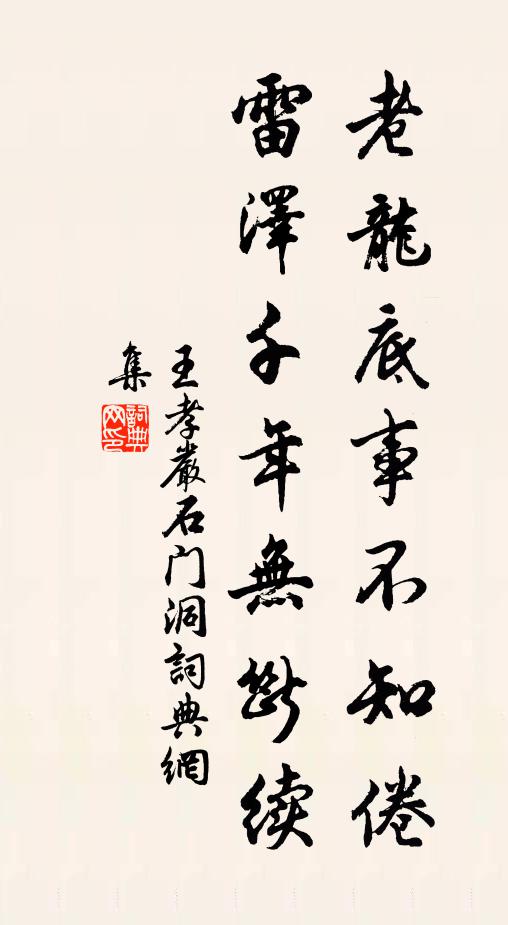 老龍底事不知倦
雷澤千年無斷续
王孝嚴石门洞詞典網
集
詞典网印